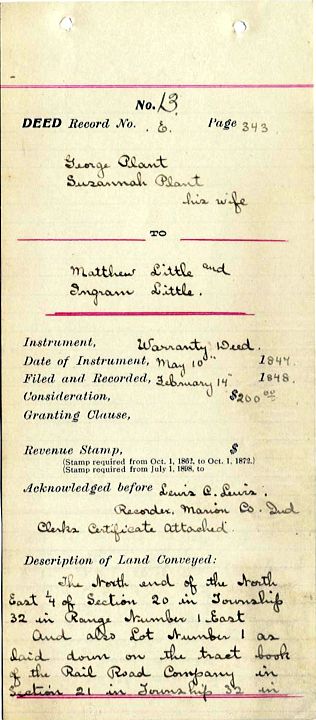 No. 13.
DEED Record No. E. Page 343
George Plant
Susannah Plant
his wife
TO
Matthew Little and
Ingram Little.
Instrument, Warranty Deed.
Date of Instrument, May 10th 1847.
Filed and Recorded, February 14th 1848.
Consideration, $200.00
Granting Clause,
Revenue Stamp, $
(Stamp required from Oct. 1, 1862, to Oct. 1, 1872.)
(Stamp required from July 1, 1898, to
Acknowledged before Lewis C. Lewis,
Recorder, Marion Co. Ind
Clerks Certificate Attached.
Description of Land Conveyed:
The North end of the North
East 1/4 of Section 20 in Township
32 in Range Number 1 East
And also Lot Number 1 as
laid down on the tract book
of the Rail Road Company in
Section 21 in Township 32 in